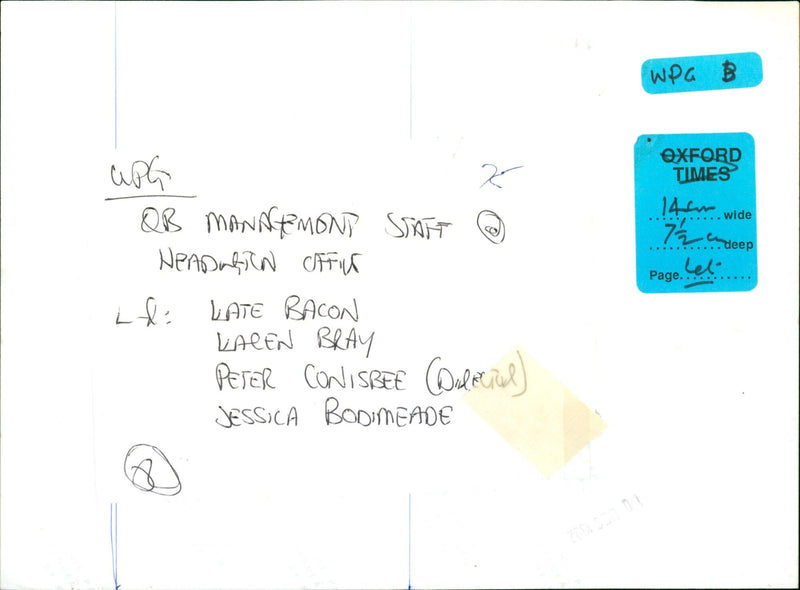 WPG B
OXFORD
TIMES
14cm wide
7½ cm deep
Page
WPG
QB MANAGEMENT STAFF @
HEADINGTON OFFICE
L-R: KATE BACON
KAREN BRAY
PETER CONISBEE (DIRECTOR)
JESSICA BODIMEADE